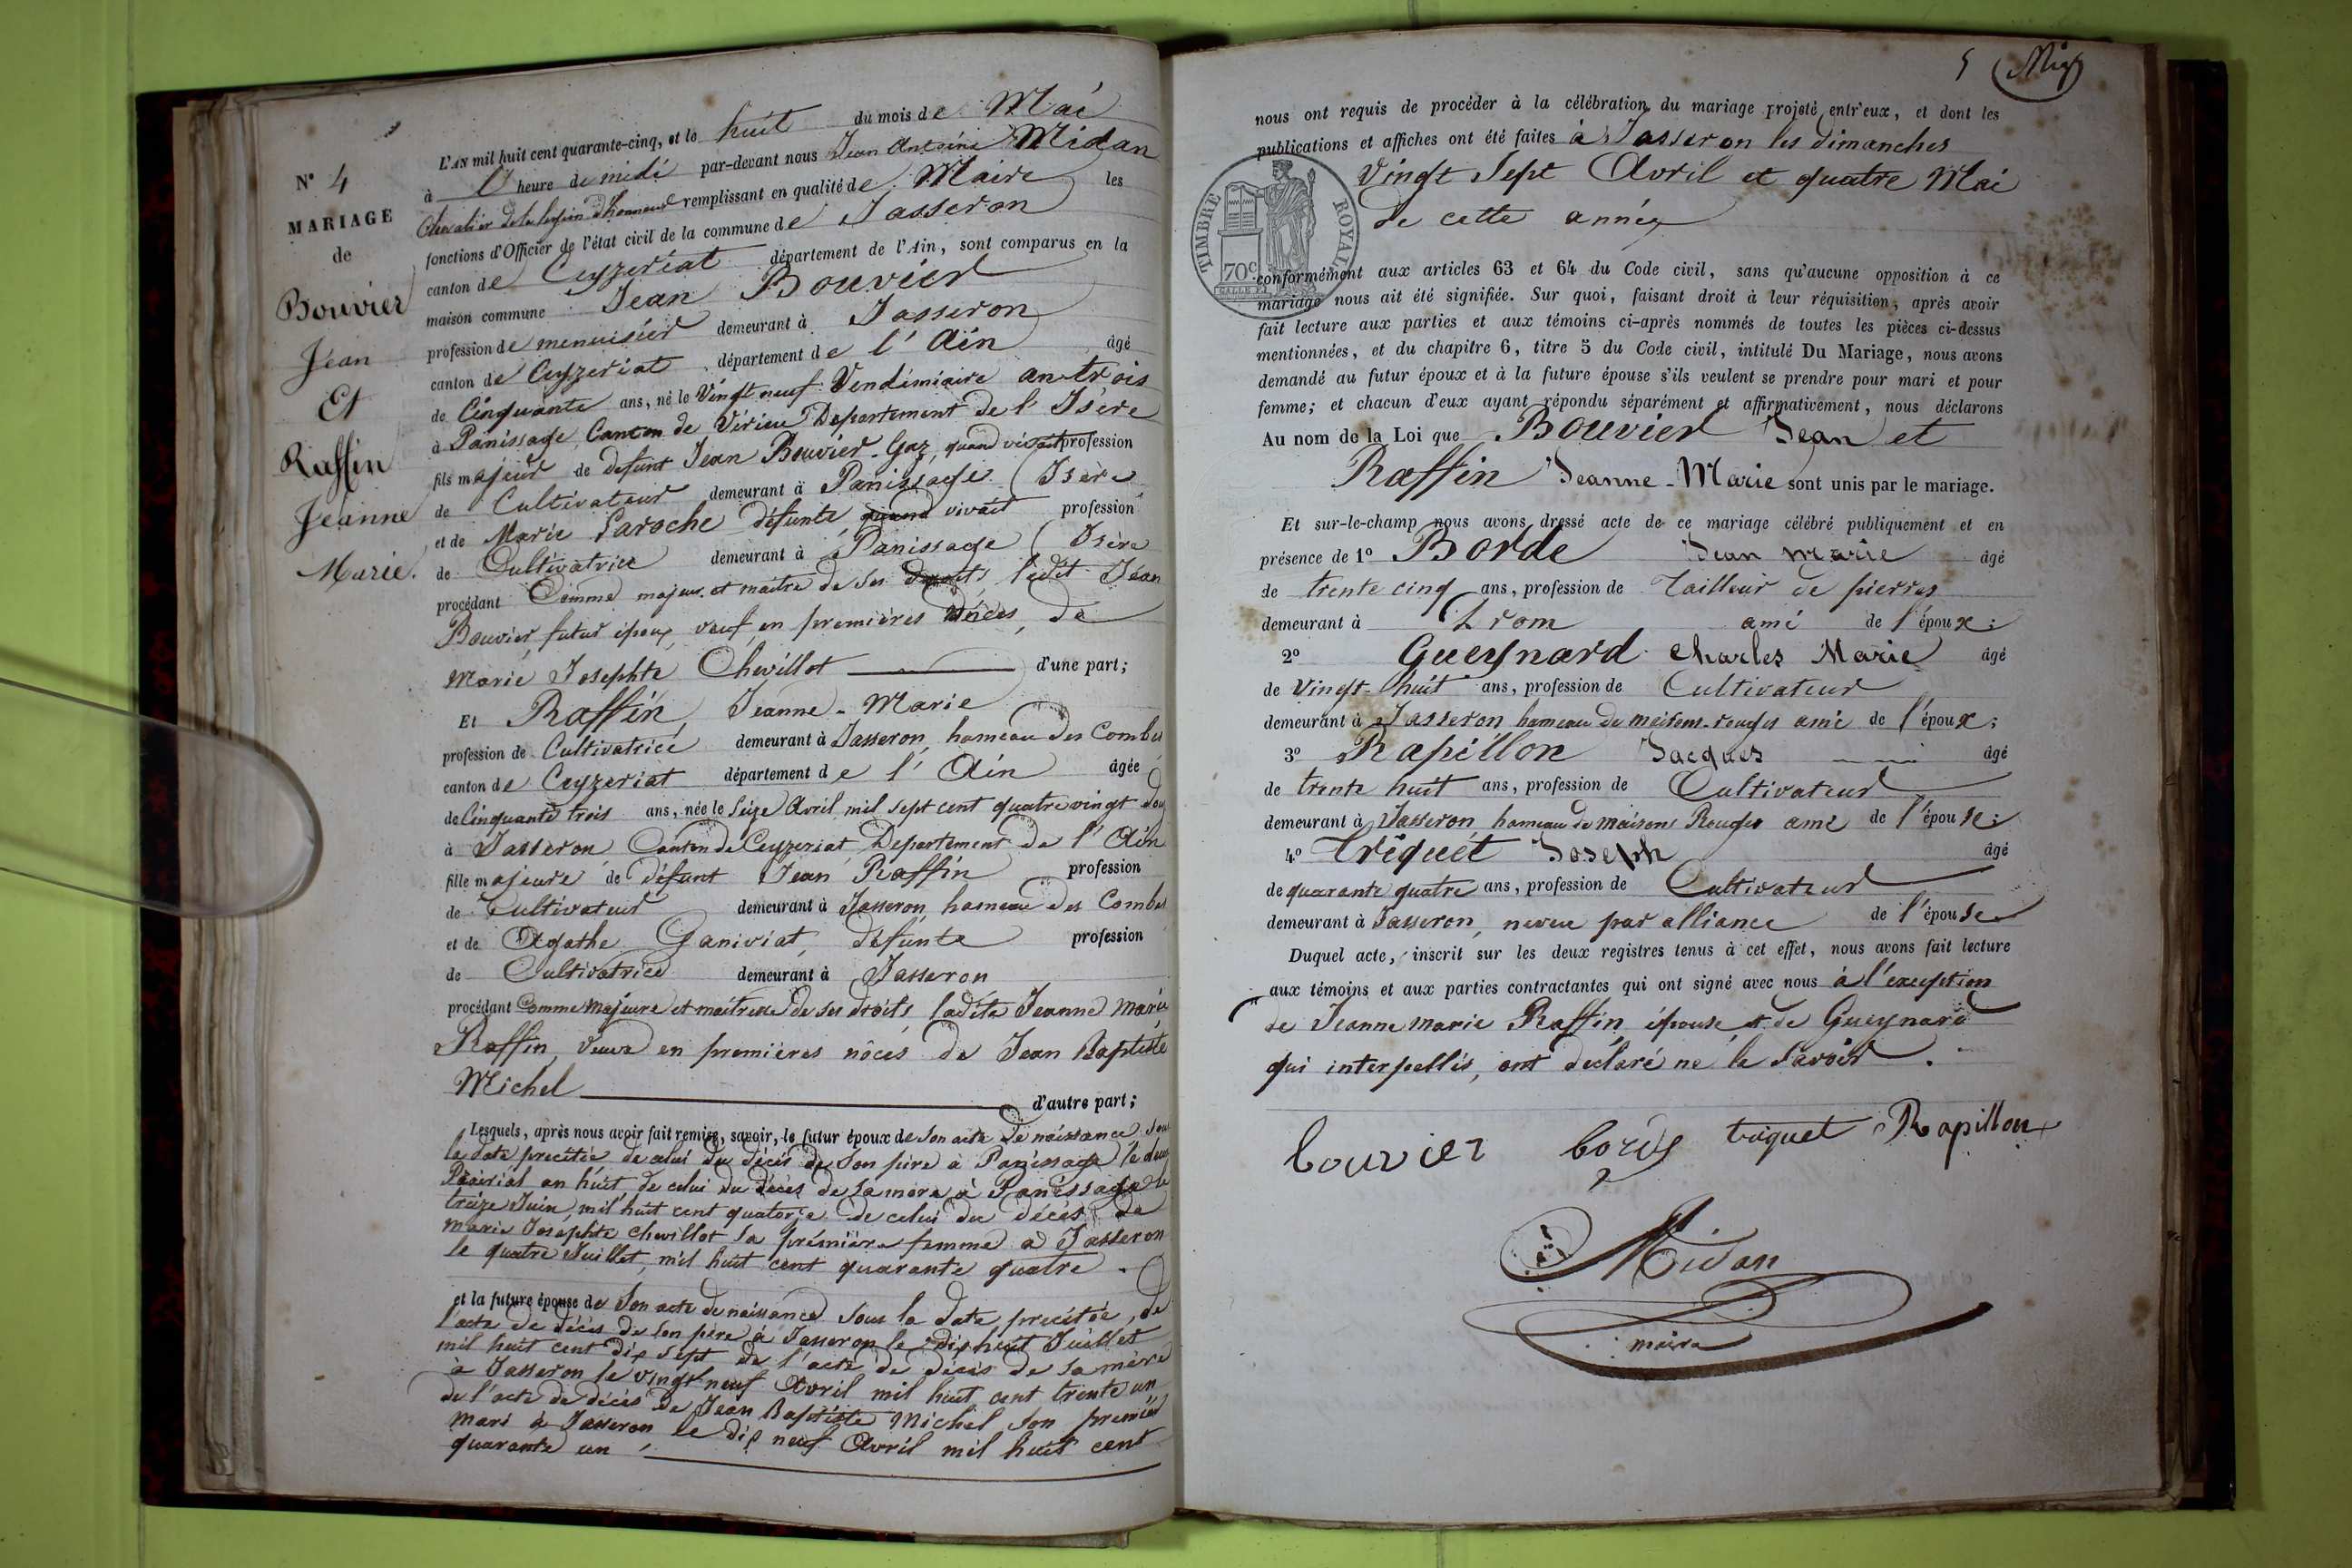 N° 4
MARIAGE
de
Bouvier
Jéan
Et
Raffin
Jéanne
Marie.
L'AN mil huit cent quarante-cinq, et le huit du mois de Mai
à l' heure de midi par-devant nous Jean Antoine Midan
Chevalier de la légion d'honneur remplissant en qualité de Maire les
fonctions d'Officier de l'état civil de la commune de Jasseron
canton de Ceyzeriat département de l'Ain, sont comparus en la
maison commune Jean Bouvier
profession de menuisier demeurant à Jasseron
canton de Ceyzeriat département de l'Ain âgé
de Cinquante ans, né le Vingt neuf Vendimiaire an trois
à Panissage, Canton de Virieu Département de l'Isère
fils majeur de defunt Jean Bouvier-Gaz, quand vivait profession
de Cultivateur demeurant à Panissage (Isere
et de Marie Laroche défunte quand vivait profession
de Cultivatrice demeurant à Panissage (Isère
procédant Comme majeur et maitre de ses droits ledit Jéan
Bouvier, futur époux, veuf en premières nôces, de
Marie Josephte Chevillot d'une part;
Et Raffin, Jéanne-Marie
profession de Cultivatrice demeurant à Jasseron, hameau des Combes
canton de Ceyzeriat département de l'Ain âgée
de Cinquante trois ans, née le Seize Avril mil sept cent quatre vingt douze
à Jasseron Canton de Ceyzeriat Département de l'Ain
fille majeure de défunt Jean Raffin profession
de Cultivateur demeurant à Jasseron, hameau des Combes
et de Agathe Ganiviat, défunte profession
de Cultivatrice demeurant à Jasseron
procédant Comme majeure et maitresse de ses droits ladite Jeanne Marie
Raffin, veuve en premières nôces de Jean Baptiste
Michel d'autre part;
Lesquels, après nous avoir fait remise, savoir, le futur époux de Son acte de naissance sous
la date precitée de celui du décès de Son père à Panissage le deux
Prairial an huit de celui du décès de sa mère à Panissage le
treize Juin mil huit cent quatorze de celui du décès de
marie Joséphte chevillot sa première femme à Jasseron
le quatre Juillet, mil huit cent quarante quatre.
et la future épouse de Son acte de naissance sous la date précitée, de
l'acte de décès de son père à Jasseron le dix huit Juillet
mil huit cent dix sept de l'acte de décès de sa mère
à Jasseron le vingt neuf Avril mil huit cent trente un
de l'acte de décès de Jean Baptiste Michel son premier
mari à Jasseron le dix neuf Avril mil huit cent
quarante un
5
nous ont requis de procéder à la célébration du mariage projeté entr'eux, et dont les
publications et affiches ont été faites à Jasseron les dimanches
Vingt Sept Avril et quatre Mai
de cette année
TIMBRE ROYAL
70c
conformément aux articles 63 et 64 du Code civil, sans qu'aucune opposition à ce
mariage nous ait été signifiée. Sur quoi, faisant droit à leur réquisition, après avoir
fait lecture aux parties et aux témoins ci-après nommés de toutes les pièces ci-dessus
mentionnées, et du chapitre 6, titre 5 du Code civil, intitulé Du Mariage, nous avons
demandé au futur époux et à la future épouse s'ils veulent se prendre pour mari et pour
femme; et chacun d'eux ayant répondu séparément et affirmativement, nous déclarons
Au nom de la Loi que Bouvier Jean et
Raffin Jeanne-Marie sont unis par le mariage.
Et sur-le-champ nous avons dressé acte de ce mariage célébré publiquement et en
présence de 1° Borde Jean Marie âgé
de trente cinq ans, profession de Tailleur de pierres
demeurant à Drom ami de l'époux;
2° Gueynard Charles Marie âgé
de Vingt-huit ans, profession de Cultivateur
demeurant à Jasseron hameau de maisons-rouges ami de l'époux;
3° Rapillon Jacques âgé
de trente huit ans, profession de Cultivateur
demeurant à Jasseron, hameau de maisons Rouges ami de l'épouse;
4° Triquet Joseph âgé
de quarante quatre ans, profession de Cultivateur
demeurant à Jasseron, neveu par alliance de l'épouse
Duquel acte, inscrit sur les deux registres tenus à cet effet, nous avons fait lecture
aux témoins et aux parties contractantes qui ont signé avec nous à l'exception
de Jeanne marie Raffin, épouse et de Gueynard
qui interpellés, ont déclaré ne le savoir.
bouvier borde triquet Rapillon
Midan
maire